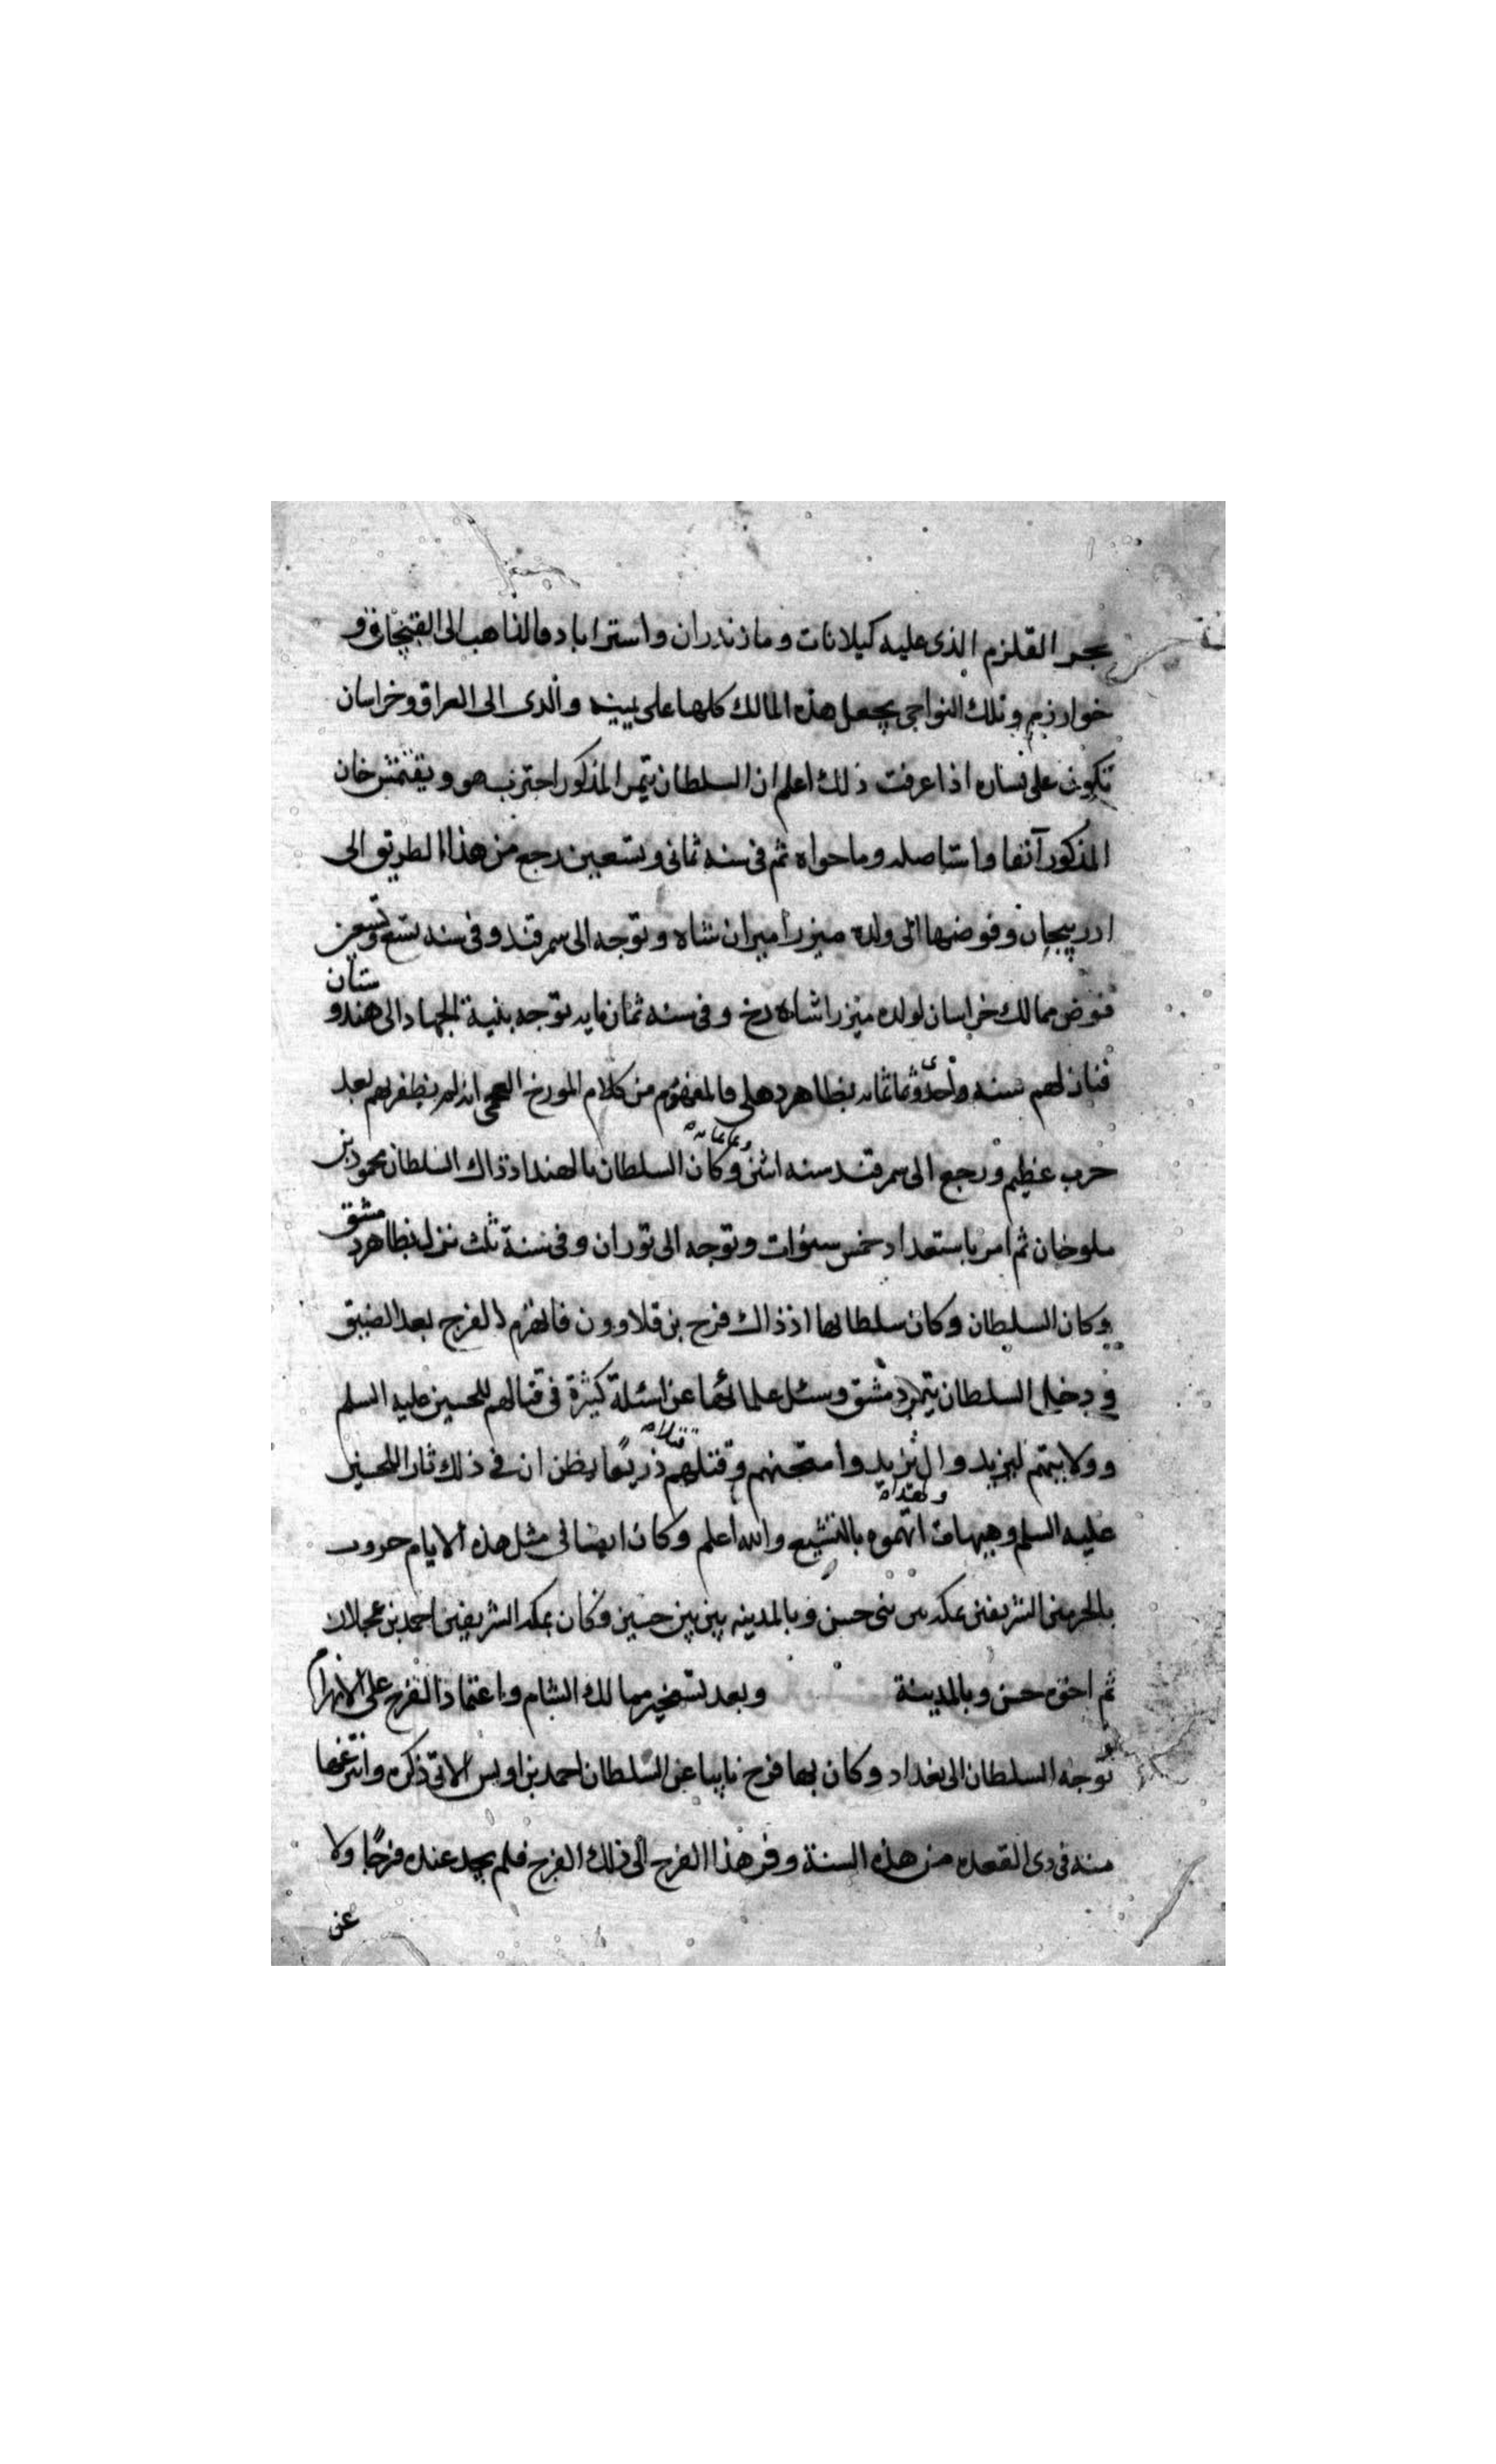 بحر القلزم الذى عليه كيلانات وماذندران واستراباد فالذاهب الى القبجاق و
خوارزم وتلك النواحى يجعل هذه الممالك كلها على يمينه والذى الى العراق وخراسان
تكون على يساره اذا عرفت ذلك اعلم ان السلطان تيمر المذكور احترب هو ويقتمش خان
المذكور آنفا واستاصله وما حواه ثم فى سنه ثمانى وتسعين رجع من هذا الطريق الى
ادربيجان وفوضها الى ولده ميزرا ميران شاه وتوجه الى سمرقند وفى سنه تسع وتسعين
فوض ممالك خراسان لولده ميزرا شاه رخ وفى سنه ثمان مايه توجه بنية الجهاد الى هندوستان
فنازلهم سنه واحدى وثمانمايه بظاهر دهلى فالمفهوم من كلام المورخ العجمى انه لم يظفر بهم بعد
حرب عظيم ورجع الى سمرقند سنه اثنى وثمانمايه وكان السلطان بالهند اذذاك السلطان محمود بن
ملوخان ثم امر باستعداد خمس سنوات وتوجه الى توران وفى سنة ثلث نزل بظاهر دمشق
وكان السلطان وكان سلطانها اذذاك فرج بن قلاوون فانهزم الفرج بعد الضيق
ودخل السلطان تيمر دمشق وسئل علمائها عن اسئلة كثيرة فى قتالهم للحسين عليه السلم
وولايتهم ليزيد وال يزيد وامتحنهم وقتلهم قتلاه ذريعا يظن ان فى ذلك ثار للحسين
عليه السلم وهيهات ولهذا اتهموه بالتشيع والله اعلم وكان ايضا فى مثل هذه الايام حروب
بالحرمين الشريفين بمكه بين بنى حسن وبالمدينه بين بين حسين وكان بمكه الشريفين احمد بن عجلان
ثم اخوه حسن وبالمدينة وبعد تسخير ممالك الشام واعتماد الفرج على الانهزام
توجه السلطان الى بغداد وكان بها فرج نايبا عن السلطان احمد بن اويس الاتى ذكره وانتزعها
منه فى ذى القعده من هذه السنة وفر هذا الفرج الى ذلك الفرج فلم يجد عنده فرجا ولا
عن